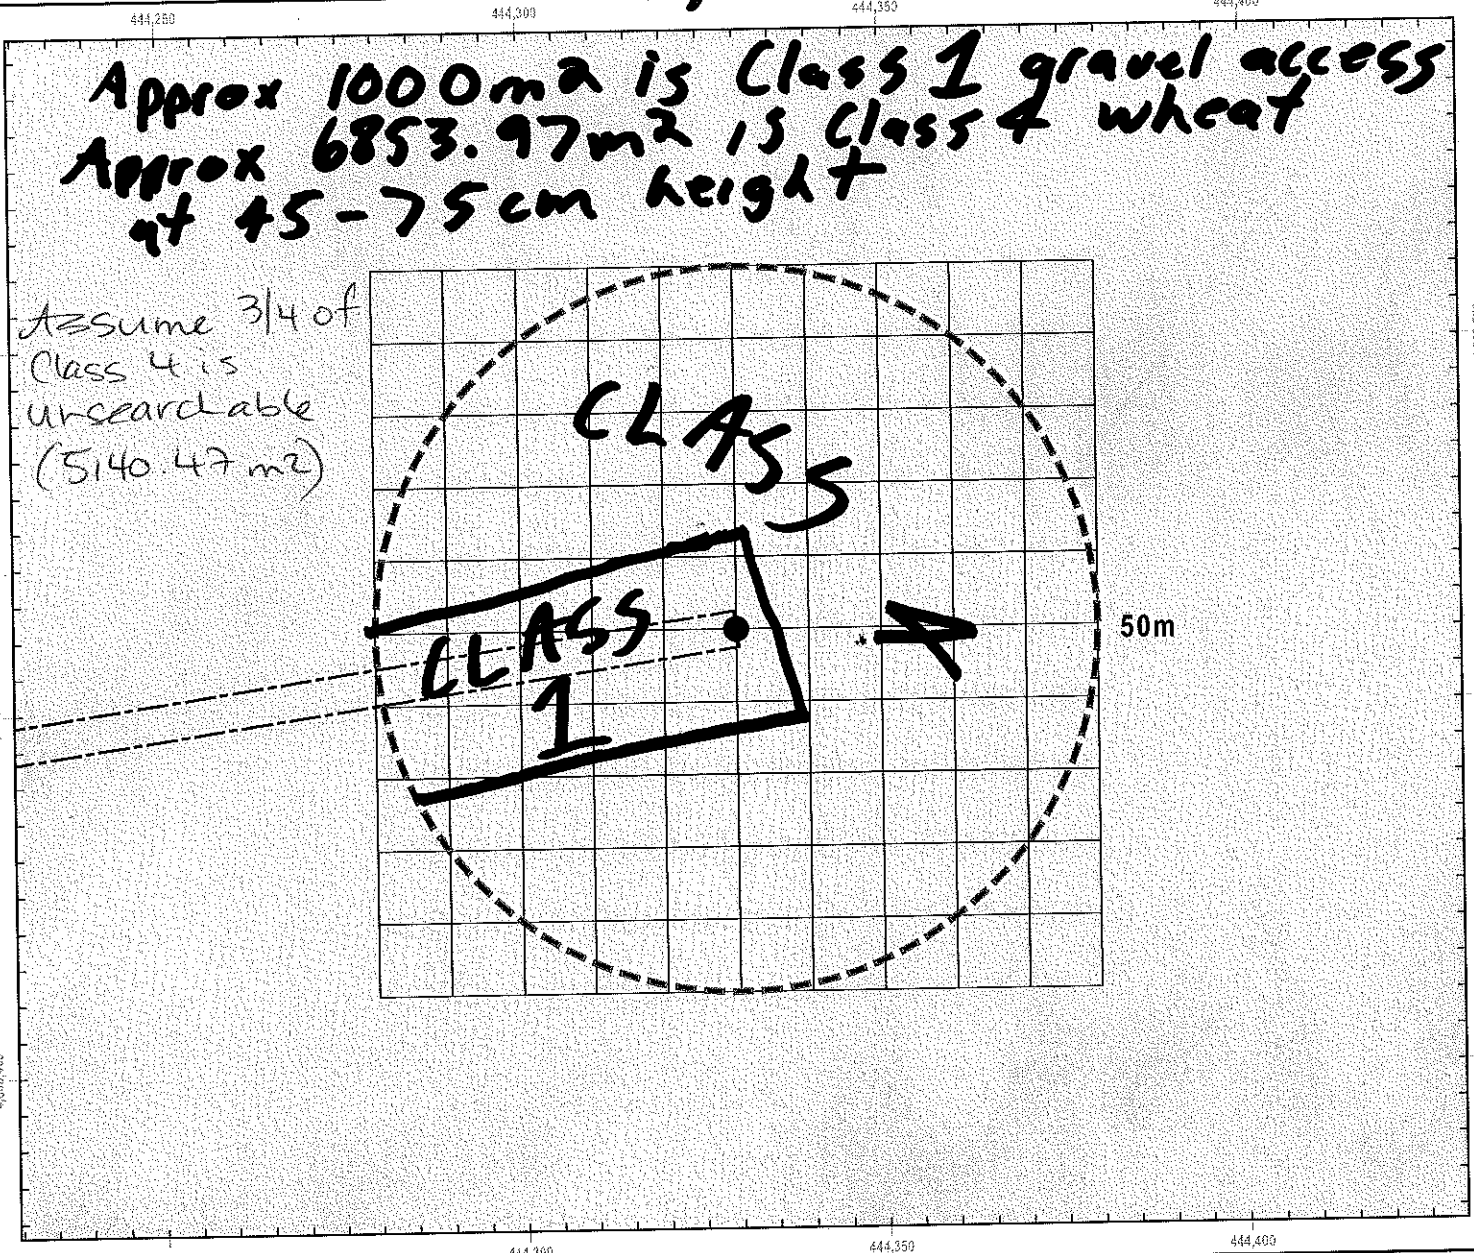 444,250
444,300
444,350
444,400
Approx 1000m2 is Class 1 gravel access
Approx 6853.97m2 is Class 4 wheat
at 45-75cm height
Assume 3/4 of
Class 4 is
unsearchable
(5140.47 m2)
CLASS
4
CLASS
1
50m
444,300
444,350
444,400